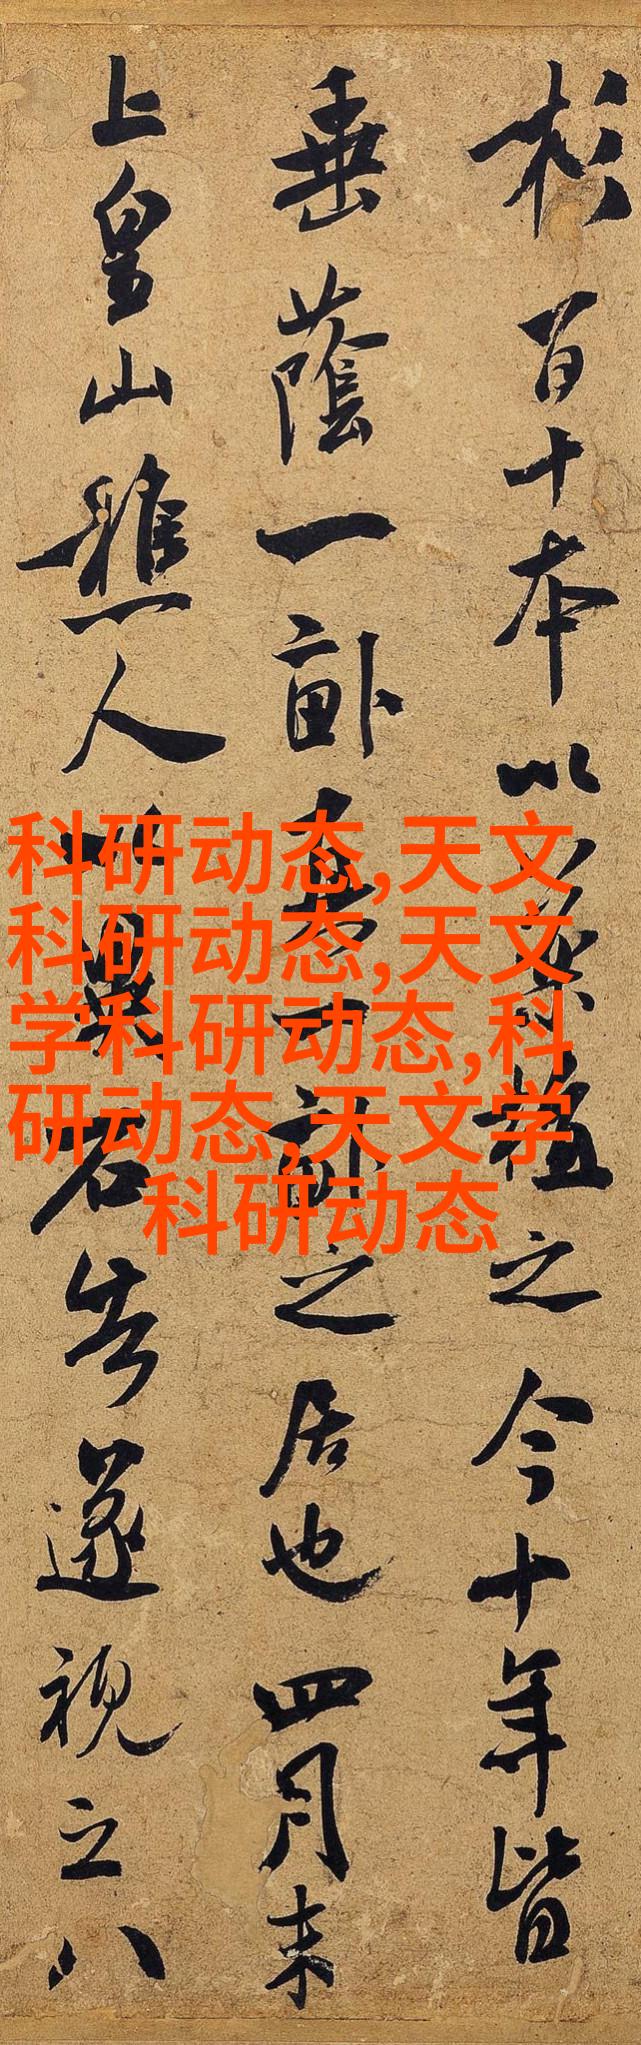 杉百十本以植之今十年皆
垂蔭一畝一畝之居也四月末
上皇山樵人以異石告遂視之八
科研动态,天文
科研动态,天文
学科研动态,科
研动态,天文学
科研动态